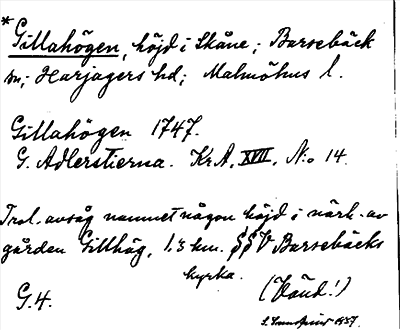 *Gillahögen, höjd i Skåne; Barsebäck
sn; Harjagers hd; Malmöhus l.
Gillahögen 1747.
G. Adlerstierna. Kr.A, XVII, N:o 14.
Trol. avsåg namnet någon höjd i närh. av
gården Gillhög, 1.3 km. SSV Barsebäcks
kyrka.
G.4.
(Vänd!)
1937.